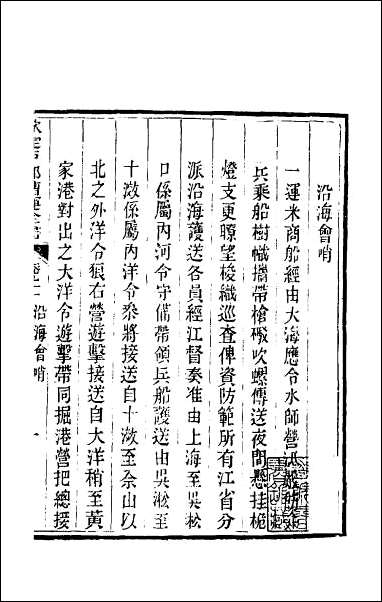 沿海會哨
一運米商船經由大海應令水師營
兵乘船樹幟攜帶槍礮吹螺傳送夜間懸挂桅
燈支更瞭望梭織巡查俾資防範所有江省分
派沿海護送各員經江督奏准由上海至吳淞
口係屬內河令守備帶領兵船護送由吳淞至
十滧係屬內洋令叅將接送自十滧至佘山以
北之外洋令狼右營遊擊接送自大洋稍至黃
家港對出之大洋令遊擊帶同掘港營把總接
沿海會哨 一